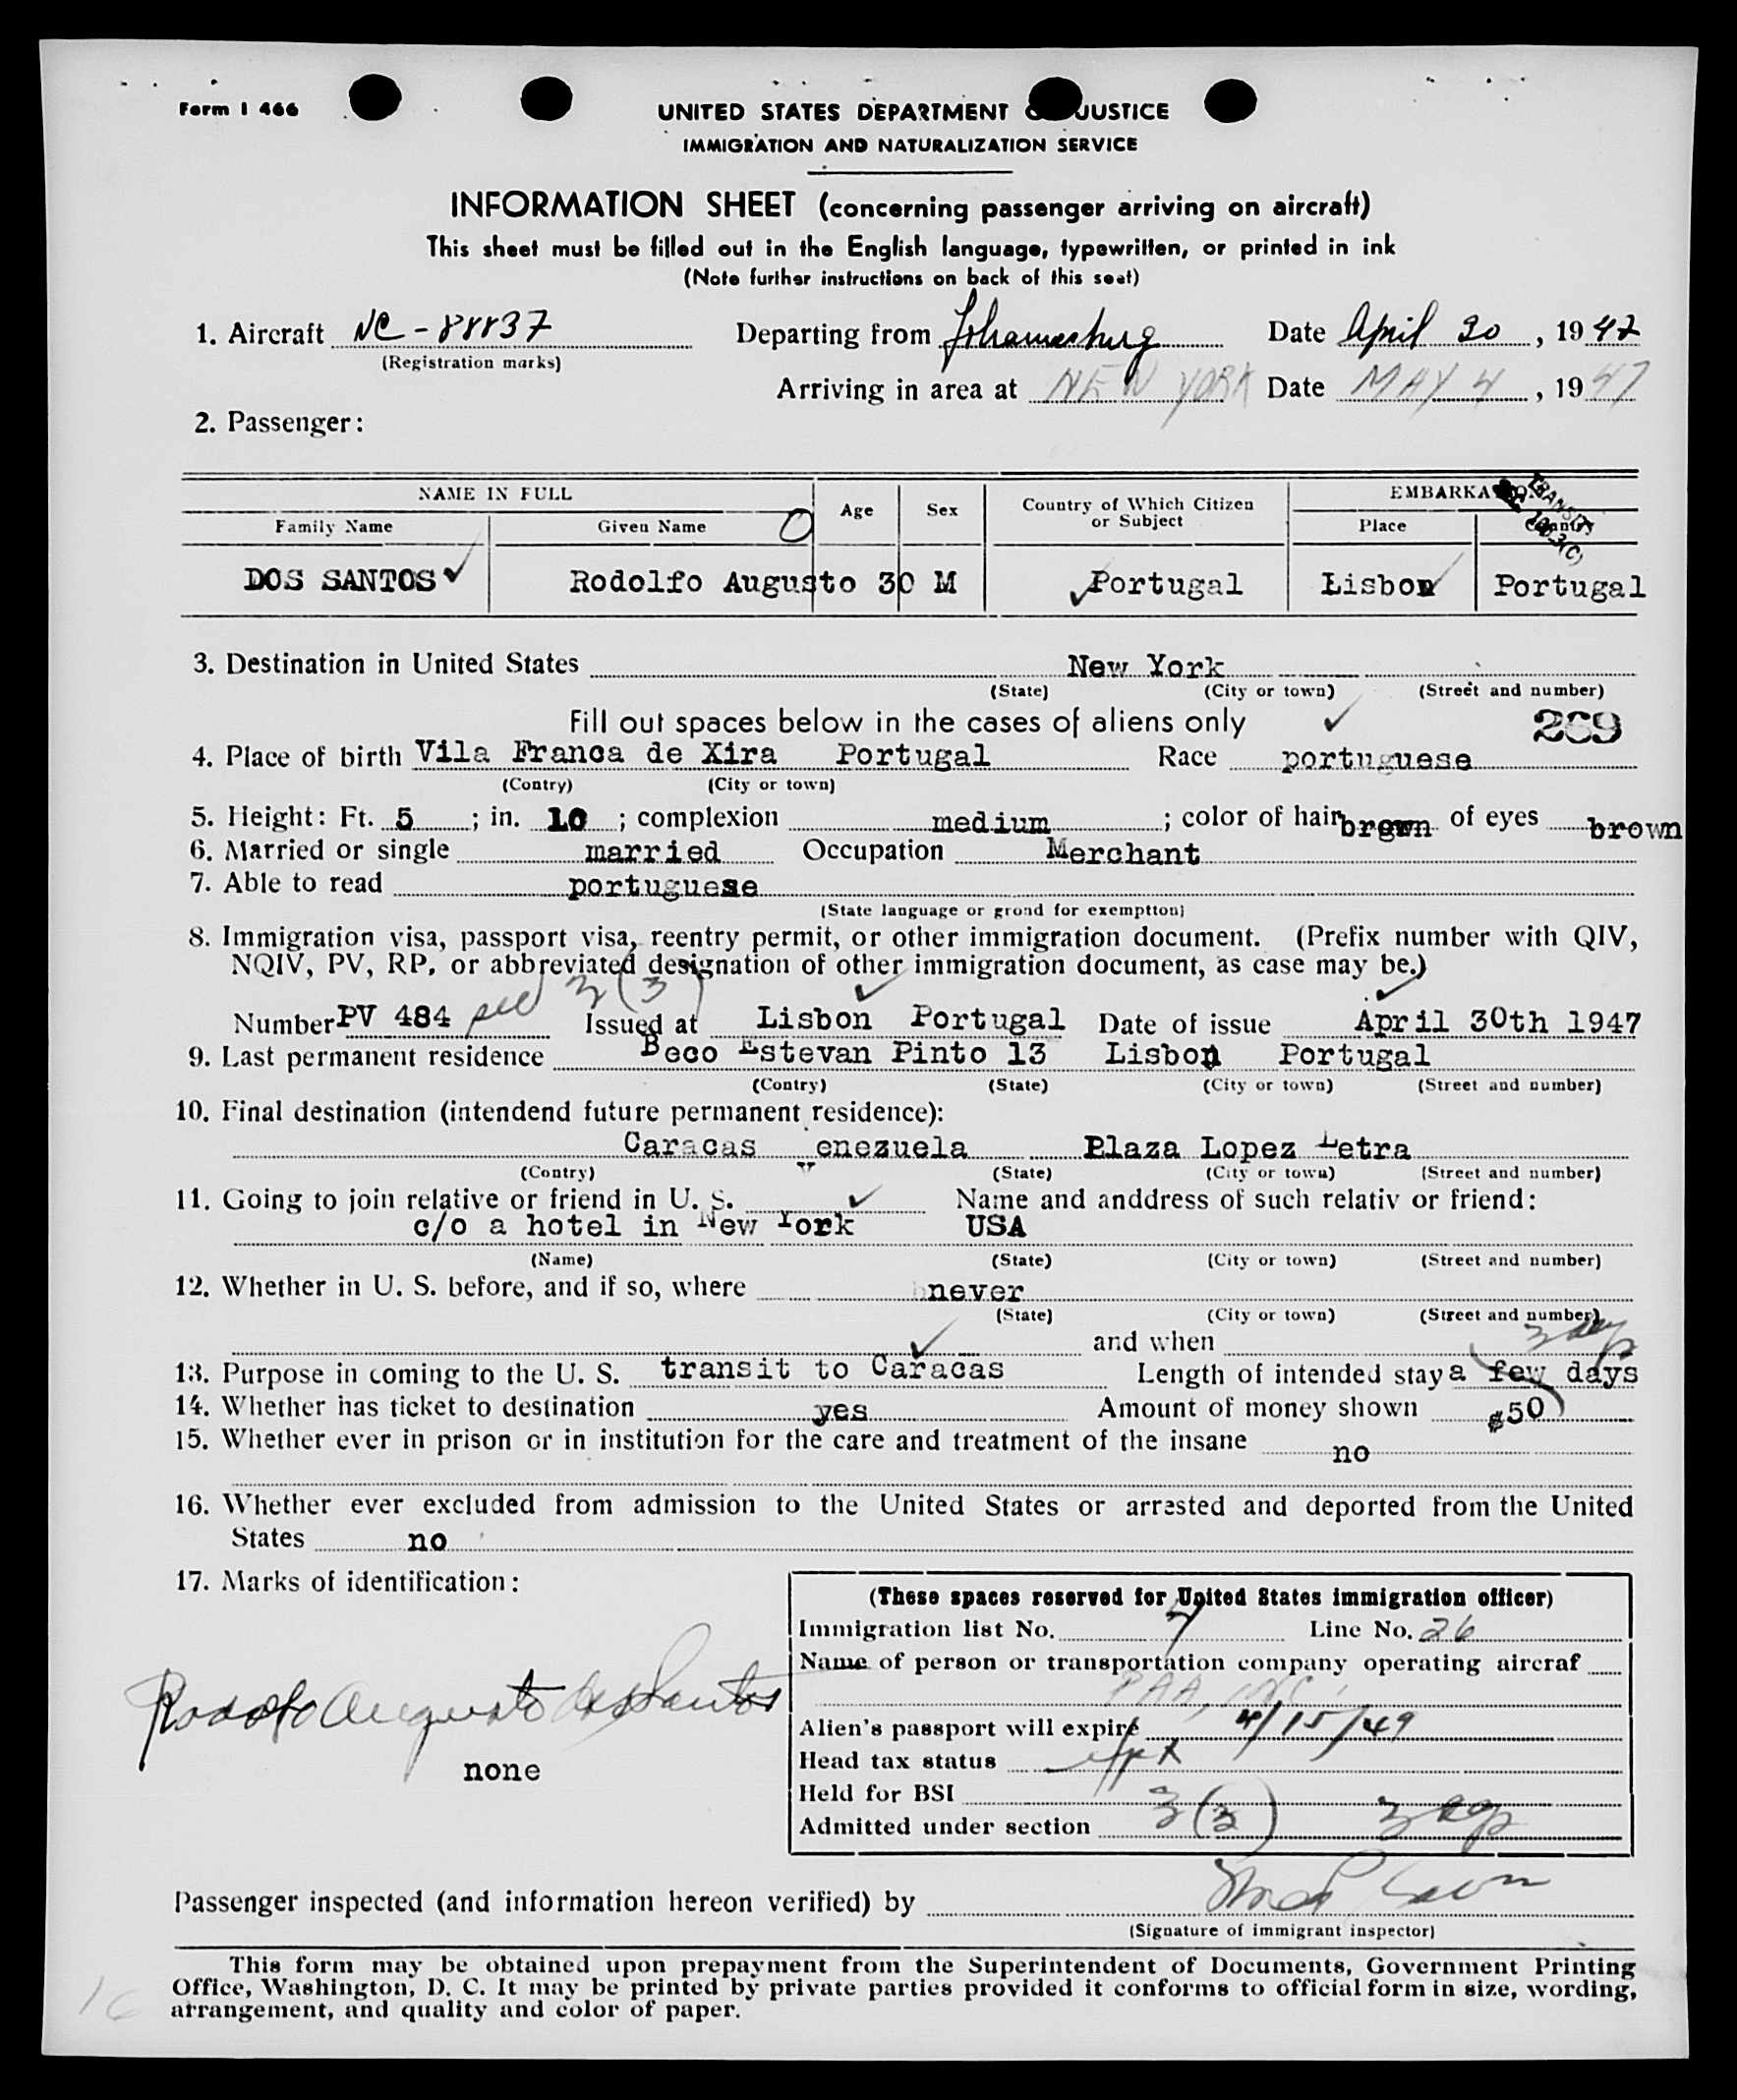 Form I 466
UNITED STATES DEPARTMENT O JUSTICE
IMMIGRATION AND NATURALIZATION SERVICE
INFORMATION SHEET (concerning passenger arriving on aircraft)
This sheet must be filled out in the English language, typewritten, or printed in ink
(Note further instructions on back of this seet)
1. Aircraft NC-88837 Departing from Johannesburg Date April 30, 1947
(Registration marks)
Arriving in area at NEW YORK Date MAY 4, 1947
2. Passenger:
NAME IN FULL Age Sex Country of Which Citizen or Subject EMBARKA TRANSIT
Family Name Given Name O Place Country 3(C)
DOS SANTOS Rodolfo Augusto 30 M Portugal Lisbon Portugal
3. Destination in United States New York
(State) (City or town) (Street and number)
Fill out spaces below in the cases of aliens only 269
4. Place of birth Vila Franca de Xira Portugal Race portuguese
(Contry) (City or town)
5. Height: Ft. 5 ; in. 10 ; complexion medium ; color of hair brown of eyes brown
6. Married or single married Occupation Merchant
7. Able to read portuguese
(State language or grond for exemptton)
8. Immigration visa, passport visa, reentry permit, or other immigration document. (Prefix number with QIV,
NQIV, PV, RP, or abbreviated designation of other immigration document, as case may be.)
Number PV 484 sec 3(3) Issued at Lisbon Portugal Date of issue April 30th 1947
9. Last permanent residence Beco Estevan Pinto 13 Lisbon Portugal
(Contry) (State) (City or town) (Street and number)
10. Final destination (intendend future permanent residence):
Caracas Venezuela Plaza Lopez Letra
(Contry) (State) (City or town) (Street and number)
11. Going to join relative or friend in U. S. Name and anddress of such relativ or friend:
c/o a hotel in New York USA
(Name) (State) (City or town) (Street and number)
12. Whether in U. S. before, and if so, where never
(State) (City or town) (Street and number)
and when 3 days
13. Purpose in coming to the U. S. transit to Caracas Length of intended stay a few days
14. Whether has ticket to destination yes Amount of money shown $50
15. Whether ever in prison or in institution for the care and treatment of the insane no
16. Whether ever excluded from admission to the United States or arrested and deported from the United
States no
17. Marks of identification:
(These spaces reserved for United States immigration officer)
Immigration list No. 7 Line No. 26
Name of person or transportation company operating aircraf
PAA, INC.
Rodolfo Augusto dos Santos
Alien's passport will expire 4/15/49
none
Head tax status
Held for BSI
Admitted under section 3(3) 3
Passenger inspected (and information hereon verified) by
(Signature of immigrant inspector)
This form may be obtained upon prepayment from the Superintendent of Documents, Government Printing
Office, Washington, D. C. It may be printed by private parties provided it conforms to official form in size, wording,
arrangement, and quality and color of paper.
16